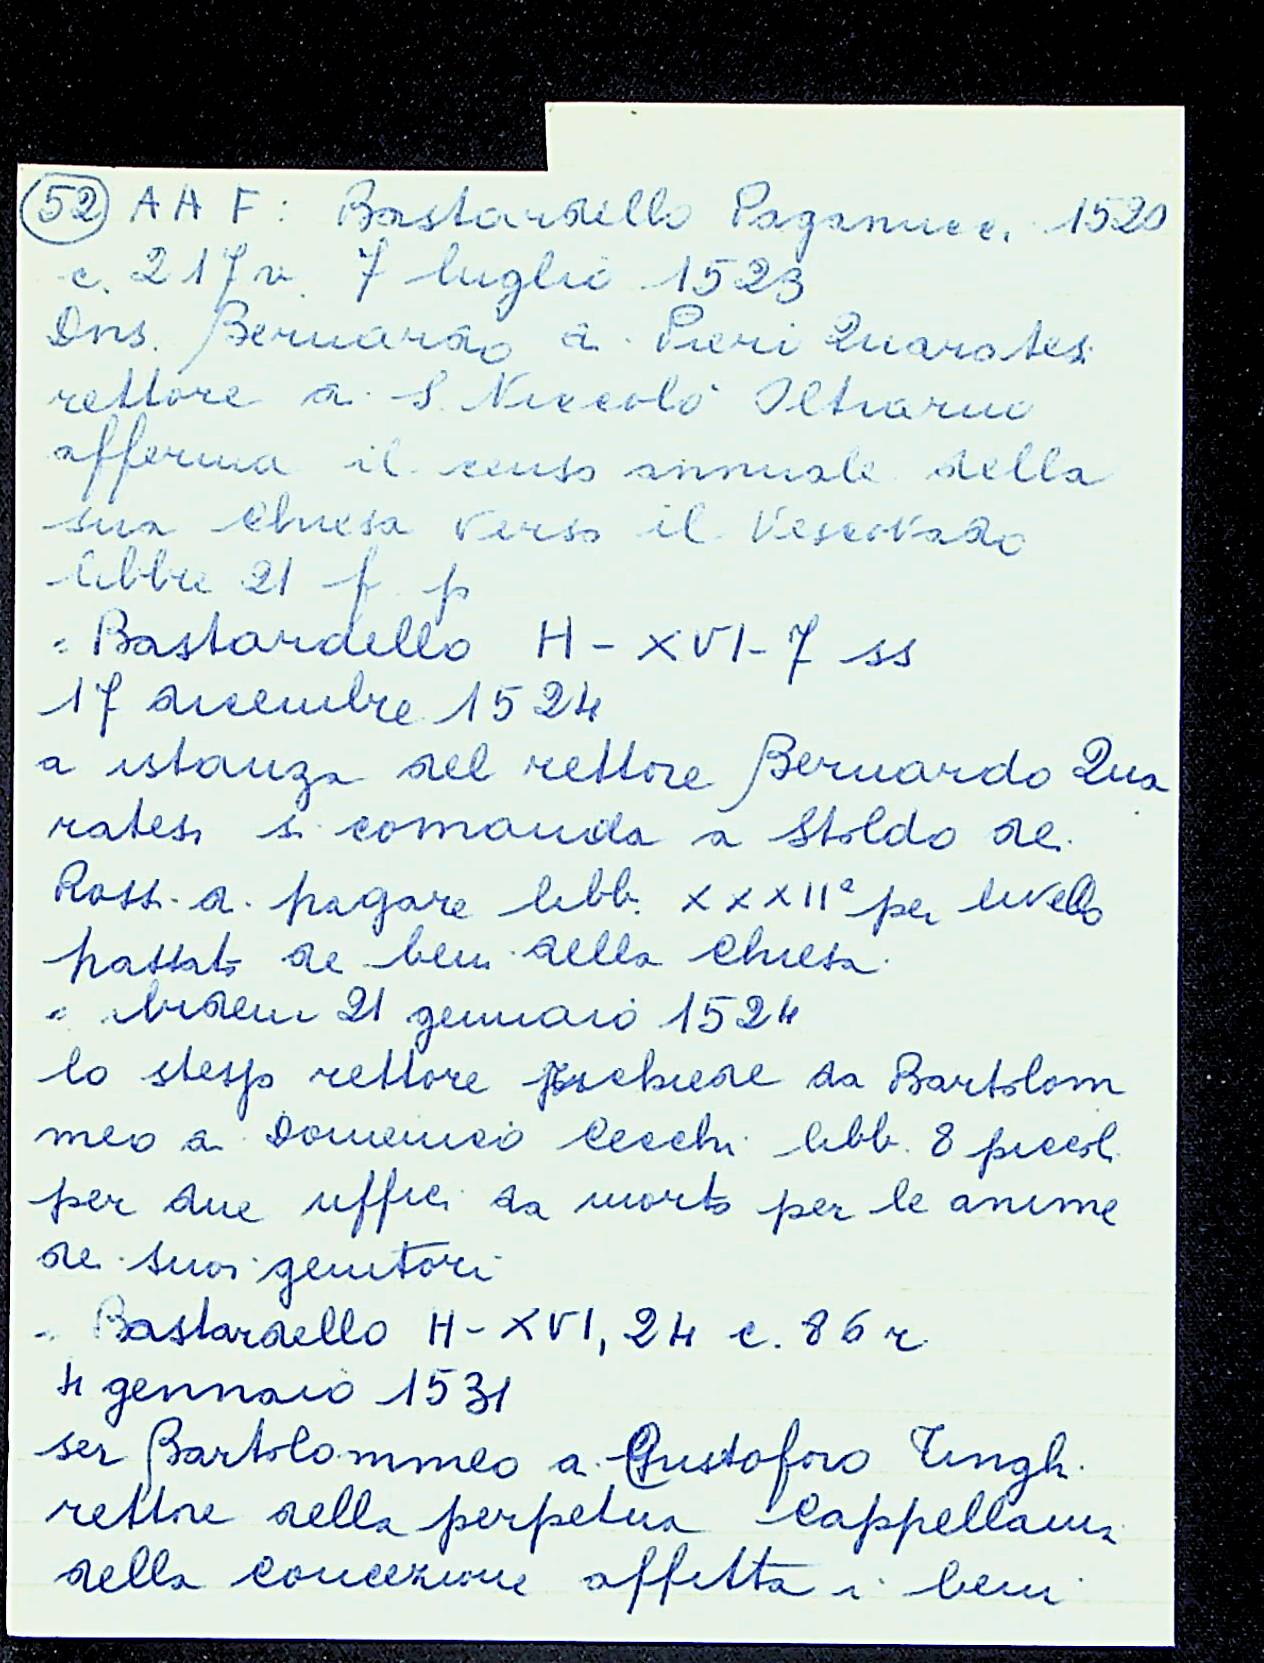 52 A A F: Bastardello Paganucci 1520
c. 217v. 7 luglio 1523
Dns. Bernardo di Pieri Quaratesi
rettore di S. Niccolò Oltrarno
afferma il censo annuale della
sua chiesa verso il Vescovado
libbre 21 f. p
= Bastardello H - XVI - 7 ss
17 dicembre 1524
a istanza del rettore Bernardo Qua
ratesi si comanda a Stoldo de
Rossi di pagare libb. XXXII e per livello
passato de beni della chiesa.
= ibidem 21 gennaio 1524
lo stesso rettore richiede da Bartolom
meo di Domenico Cecchi libb. 8 piccoli
per due uffici da morto per le anime
dei suoi genitori
= Bastardello H - XVI, 24 c. 86 r.
4 gennaio 1531
ser Bartolommeo di Cristoforo Tinghi
rettore della perpetua Cappellania
della concezione affitta i beni